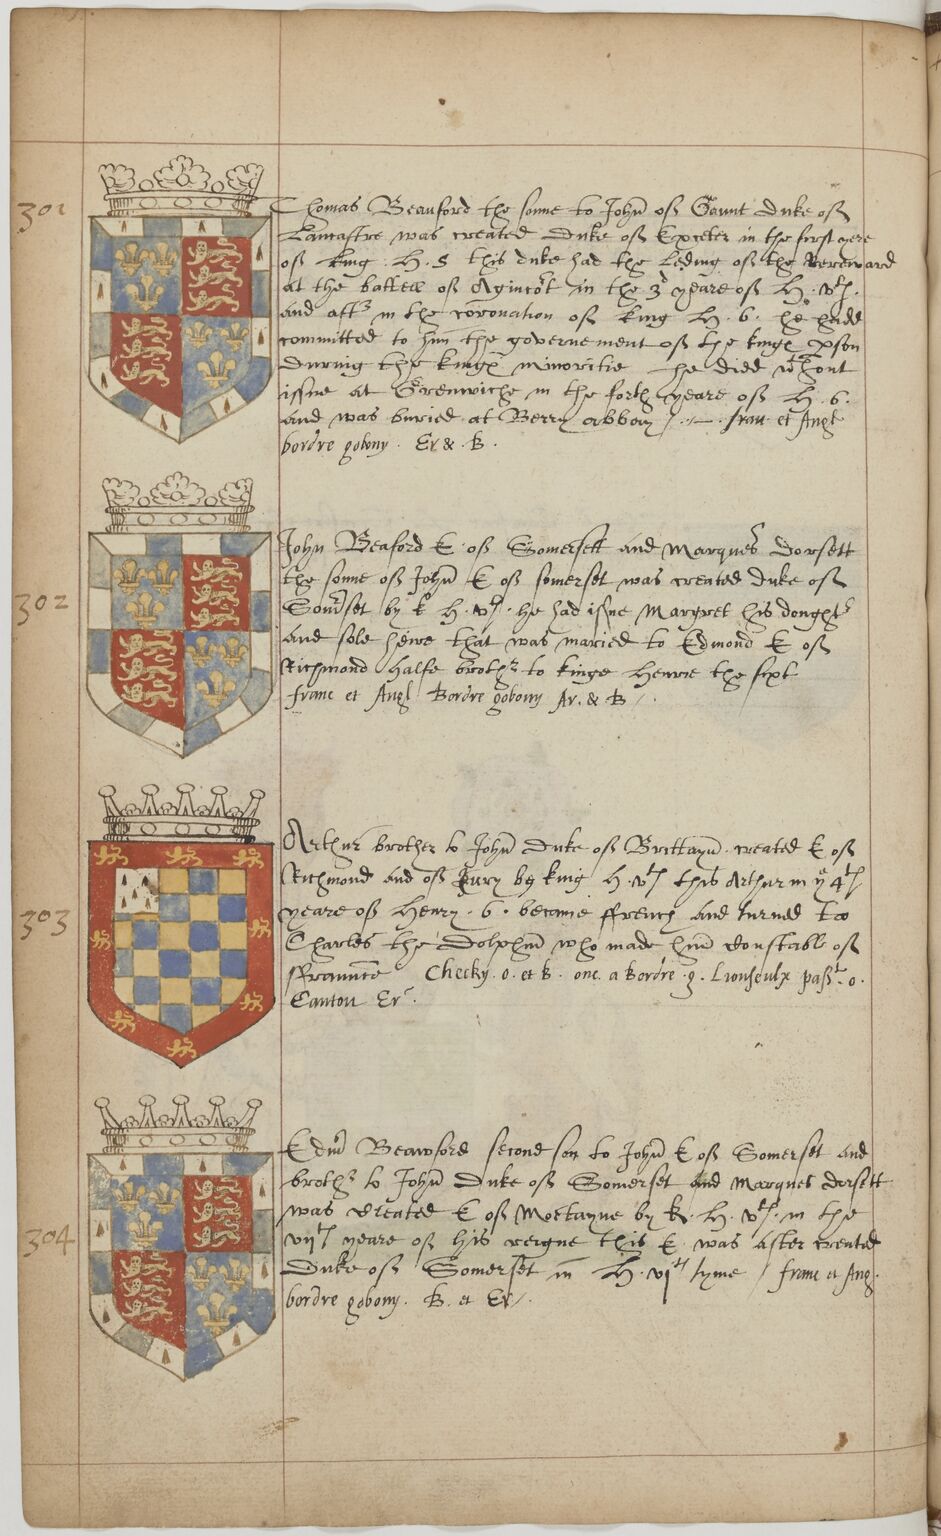 301
Thomas Beauford the sonne to John of Gaunt Duke of
Lancastre was created Duke of Exceter in the first yere
of king . H . 5 this duke had the leding of the Rereward
at the battell of Agincort in the 3 yeare of H . vth .
and after in the coronation of king H . 6 . he hadd
committed to him the governement of the kinges pson
during the kinges minoritie he died wthout
issue at Grenwiche in the forth yeare of H . 6 .
and was buried at Berry abbay / . franc et Angl
bordre gobony . Er & . B .
302
John Beaford E . of Somersett and Marques dorsett
the sonne of John E of somerset was created duke of
Somerset by k H . vth . he had issue Margret his doughter
and sole heire that was maried to Edmond E of
Richmond halfe brother to kinge Henrie the sixt
franc et Angl Bordre gobony Ar . & B /
303
Arthur brother to John Duke of Brittayn . created E of
Richmond and of Iury by king H . vth this Arthur in ye 4th
yeare of Henry . 6 . became ffrench and turned to
Charles the Dolphin who made him constable of
ffraunce Checky . o . et B . one . a Bordre . g . Lionseulx passt . o .
Canton Er .
304
Edm Beawford second son to John E of Somerset and
brother to John Duke of Somerset and Marques dorsett
was created E of Mortayne by k . H . vth . in the
viith yeare of his reigne this E was after created
Duke of Somerset in H . vith tyme / franc et Ang .
bordre gobony . B . et Er /